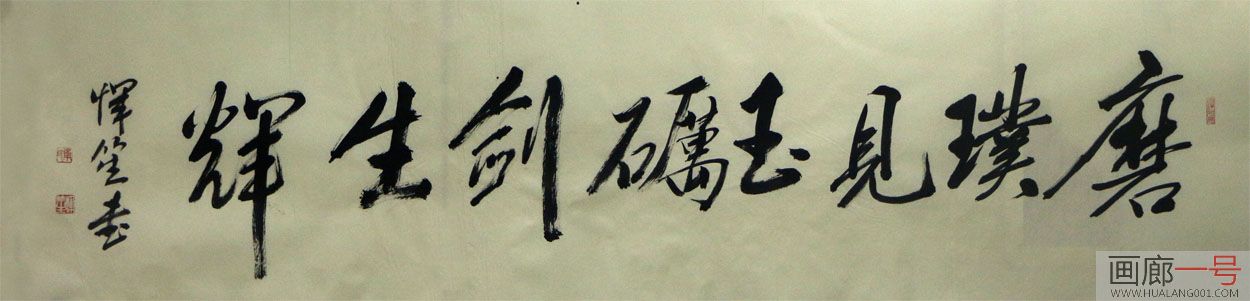 磨璞見玉礪劍生輝
惲笙书
画廊一号
WWW.HUALANG001.COM